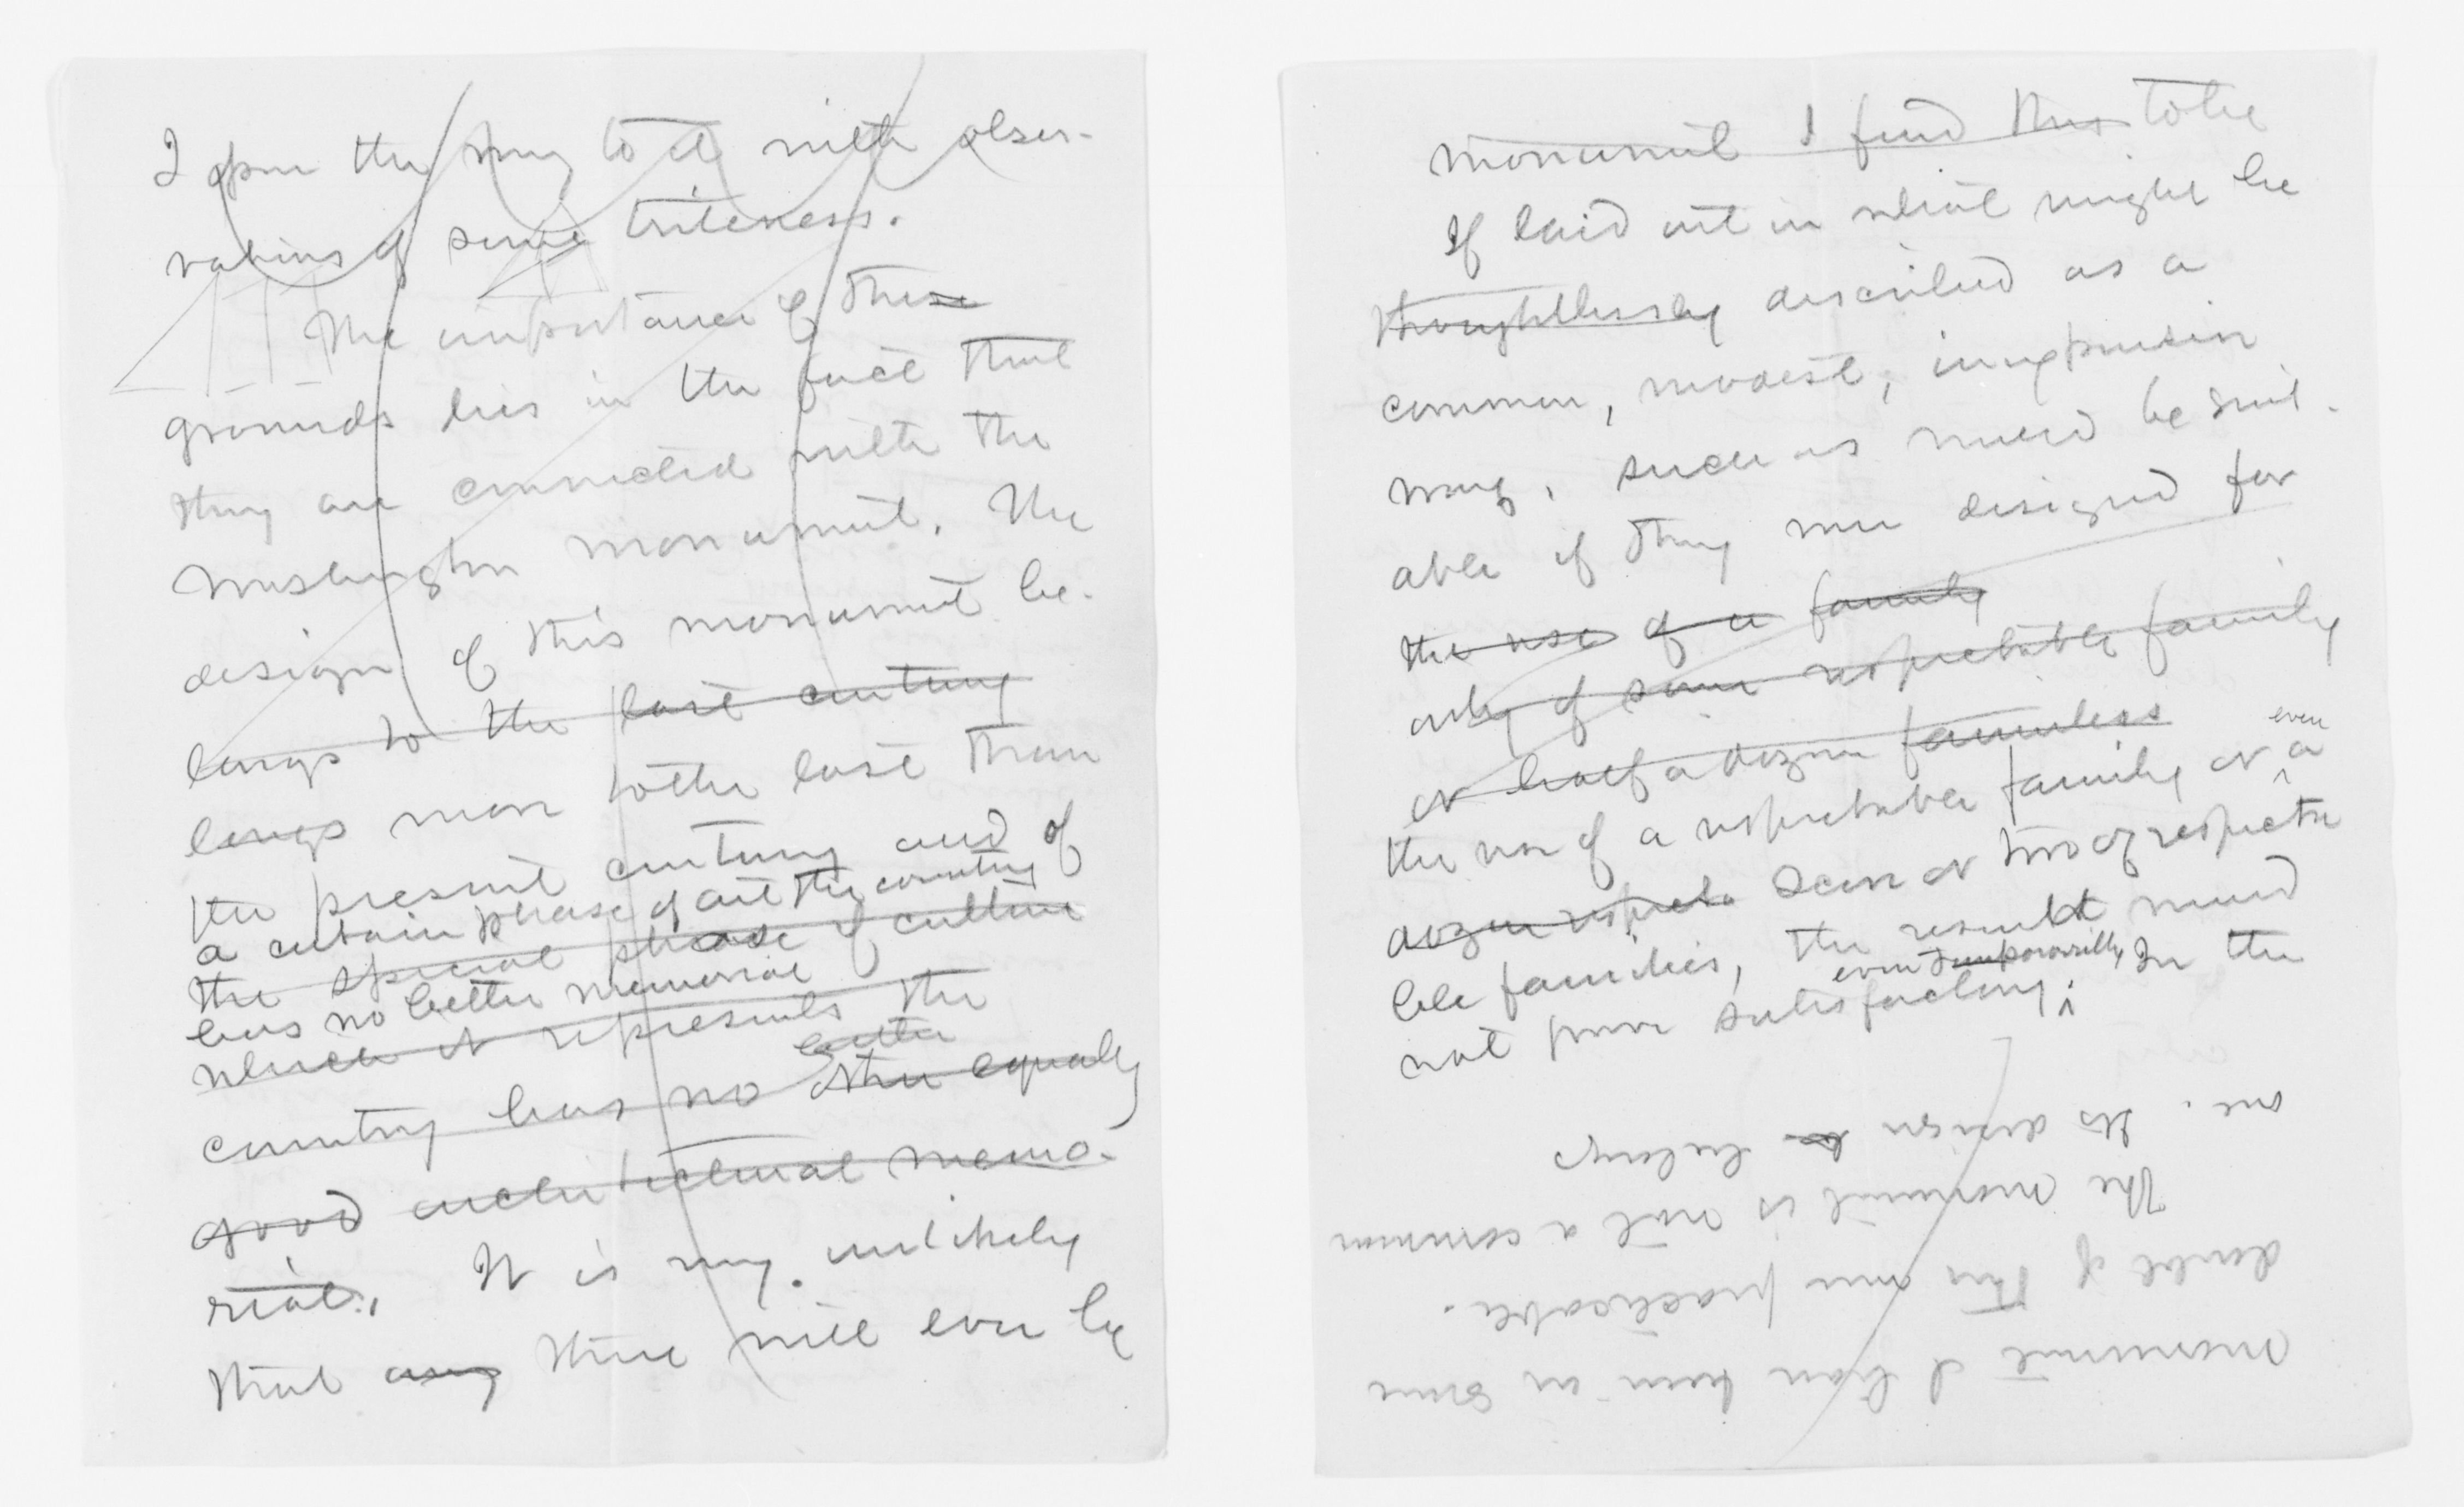 I open the way to it with obser-
vations of some triteness.
The importance of these
grounds lies in the fact that
they are connected with the
Washington monument. The
design of this monument be-
longs to the last century
longs more to the last than
the present century and of
a certain phase of art the country
the special phase of culture
has no better memorial
which it represents the
better
country has no other equally
good architectural memo-
rial. It is very unlikely
that any there will ever be
monument I find this to be
If laid out in what might be
thoughtlessly described as a
common, modest, inexpensive
way, such as would be suit-
able if they were designed for
the use of a family
only of some respectable family
or half a dozen families
even
the use of a respectable family or a
dozen respecta score or two of respecta
ble families, the result would
even temporarily
not prove satisfactory; In the
one. Its design to belongs
The monument is not a common
doubt if this were practicable.
monument I have been in some